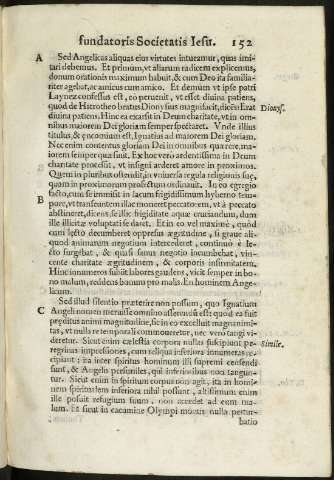 fundatoris Societatis Iesu. 152
A Sed Angelicas aliquas eius virtutes intueamur, quas imi-
tari debemus. Et primum, vt altarum radicem explicemus,
donum orationis maximum habuit, & cum Deo ita familia-
riter agebat, ac amicus cum amico. Et demum vt ipse patri
Laynez confessus est, eò peruenit, vt esset diuina patiens,
quod de Hierotheo beatus Dionysius magnificat, dicēs: Erat
diuina patiens. Hinc ea exarsit in Deum charitate, vt in om-
nibus maiorem Dei gloriam semper spectaret. Vnde illius
titulus, & encomium est, Ignatius ad maiorem Dei gloriam.
Nec enim contentus gloriam Dei in omnibus quærere, ma-
iorem semper quæsiuit. Ex hoc verò ardentissima in Deum
charitate processit, vt insigni arderet amore in proximos.
Quem in pluribus ostendit, in vniuersa regula religionis suę,
quam in proximorum profectum ordinauit. In eo egregio
facto, cum se immisit in lacum frigidissimum hyberno tempo-
B re, vt transeuntem illac moneret peccatorem, vt à peccato
abstineret, dicens se illic frigiditate aquæ cruciandum, dum
ille illicitæ voluptati se daret. Et in eo vel maximè, quòd
cum lecto decumberet oppressus ægritudine, si graue ali-
quod animarum negotium intercederet, continuò è le-
cto surgebat, & quasi sanus negotio incumbebat, vin-
cente charitate ægritudinem, & corporis infirmitatem.
Hinc innumeros subijt labores gaudens, vicit semper in bo-
no malum, reddens bonum pro malis. En hominem Ange-
licum.
Sed illud silentio præterire non possum, quo Ignatium
C Angeli nomen meruisse omnino asserendum est: quòd ea fuit
præditus animi magnitudine, sic in eo excelluit magnanimi-
tas, vt nulla re temporali commoueretur, nec verò tangi vi-
deretur. Sicut enim cælestia corpora nullas suscipiunt pe-
regrinas impressiones, cum reliqua inferiora innumeras re-
cipiant: ita inter spiritus hominum illi supremi censendi
sunt, & Angelis persimiles, qui inferioribus non tangun-
tur. Sicut enim in spiritum corpus non agit, ita in homi-
nem spiritualem inferiora nihil possunt, altissimum enim
ille posuit refugium suum, non accedet ad eum ma-
lum. Et sicut in cacumine Olympi montis nulla pertur-
batio
Dionys.
Simile.